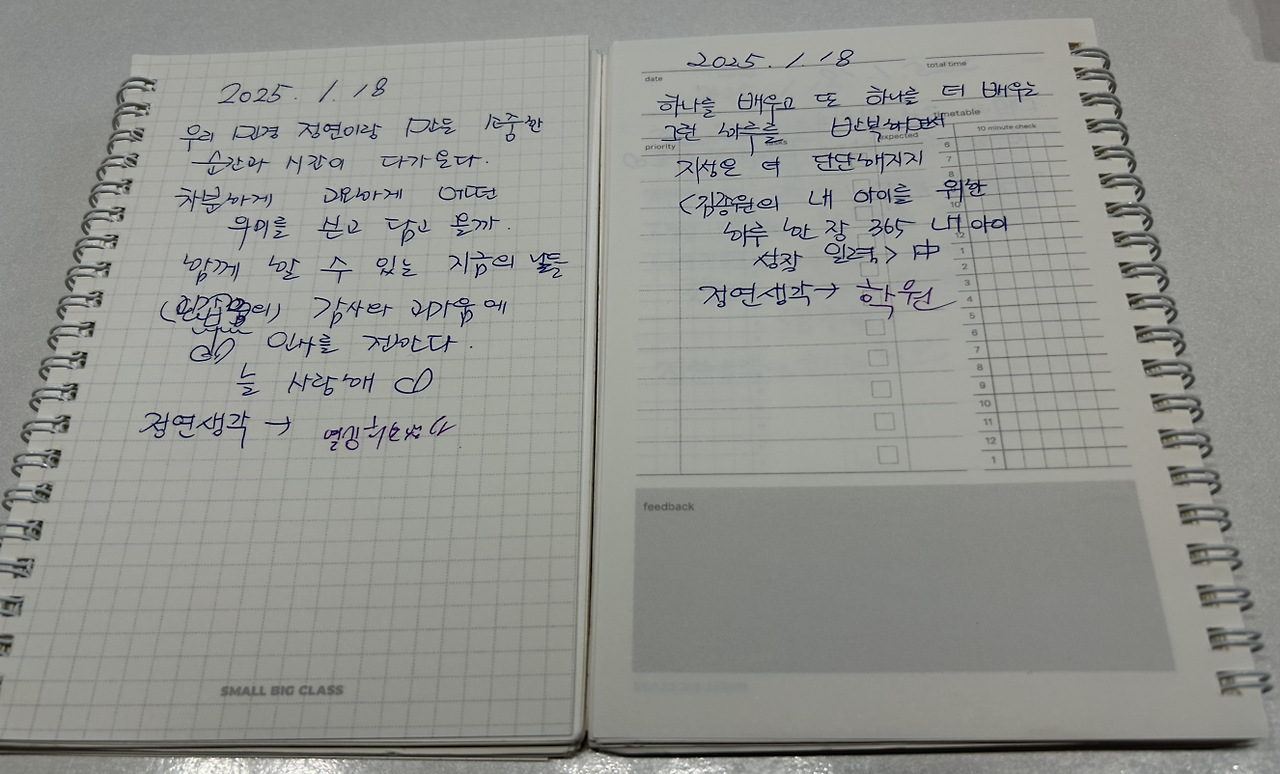 2025. 1. 18
우리 민경 정연이랑 만든 소중한
순간과 시간이 다가온다.
차분하게 고요하게 어떤
위이를 싣고 담고 올까.
함께 할 수 있는 지금의 날들
감사와 귀가움에
인사를 전한다.
늘 사랑해
정연생각 →
SMALL BIG CLASS
2025. 1. 18
date
total time
하나를 배우고 또 하나를 더 배우는
그런 하루를 반복하면서
timetable
priority
expected
10 minute check
지성은 더 단단해지지
(김종원의 내 아이를 위한
하루 한 장 365 내 아이
성장 일력> 中
정연생각→ 학원
6
7
8
10
12
1
2
3
4
5
6
7
8
9
10
11
12
1
feedback